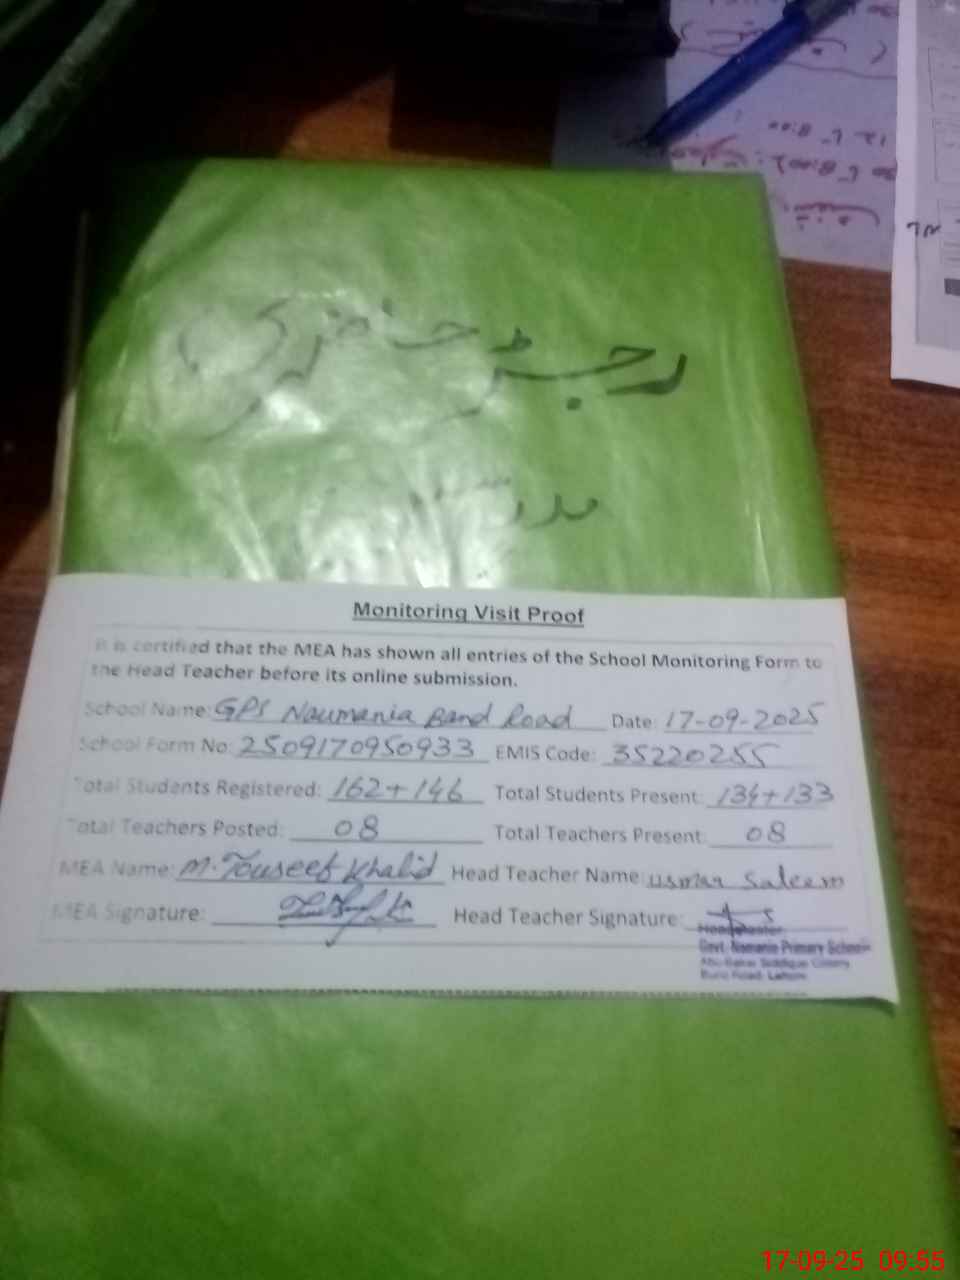 رجسٹر حاضری
Monitoring Visit Proof
It is certified that the MEA has shown all entries of the School Monitoring Form to
the Head Teacher before its online submission.
School Name: GPS Naumania Band Road Date: 17-09-2025
School Form No: 2509170950933 EMIS Code: 35220255
Total Students Registered: 162+146 Total Students Present: 134+133
Total Teachers Posted: 08 Total Teachers Present: 08
MEA Name: M. Touseef Khalid Head Teacher Name: Usman Saleem
MEA Signature: Head Teacher Signature:
Headmaster
Govt. Nomania Primary School
Abu Bakar Siddique Colony
Bund Road Lahore
17-09-25 09:55